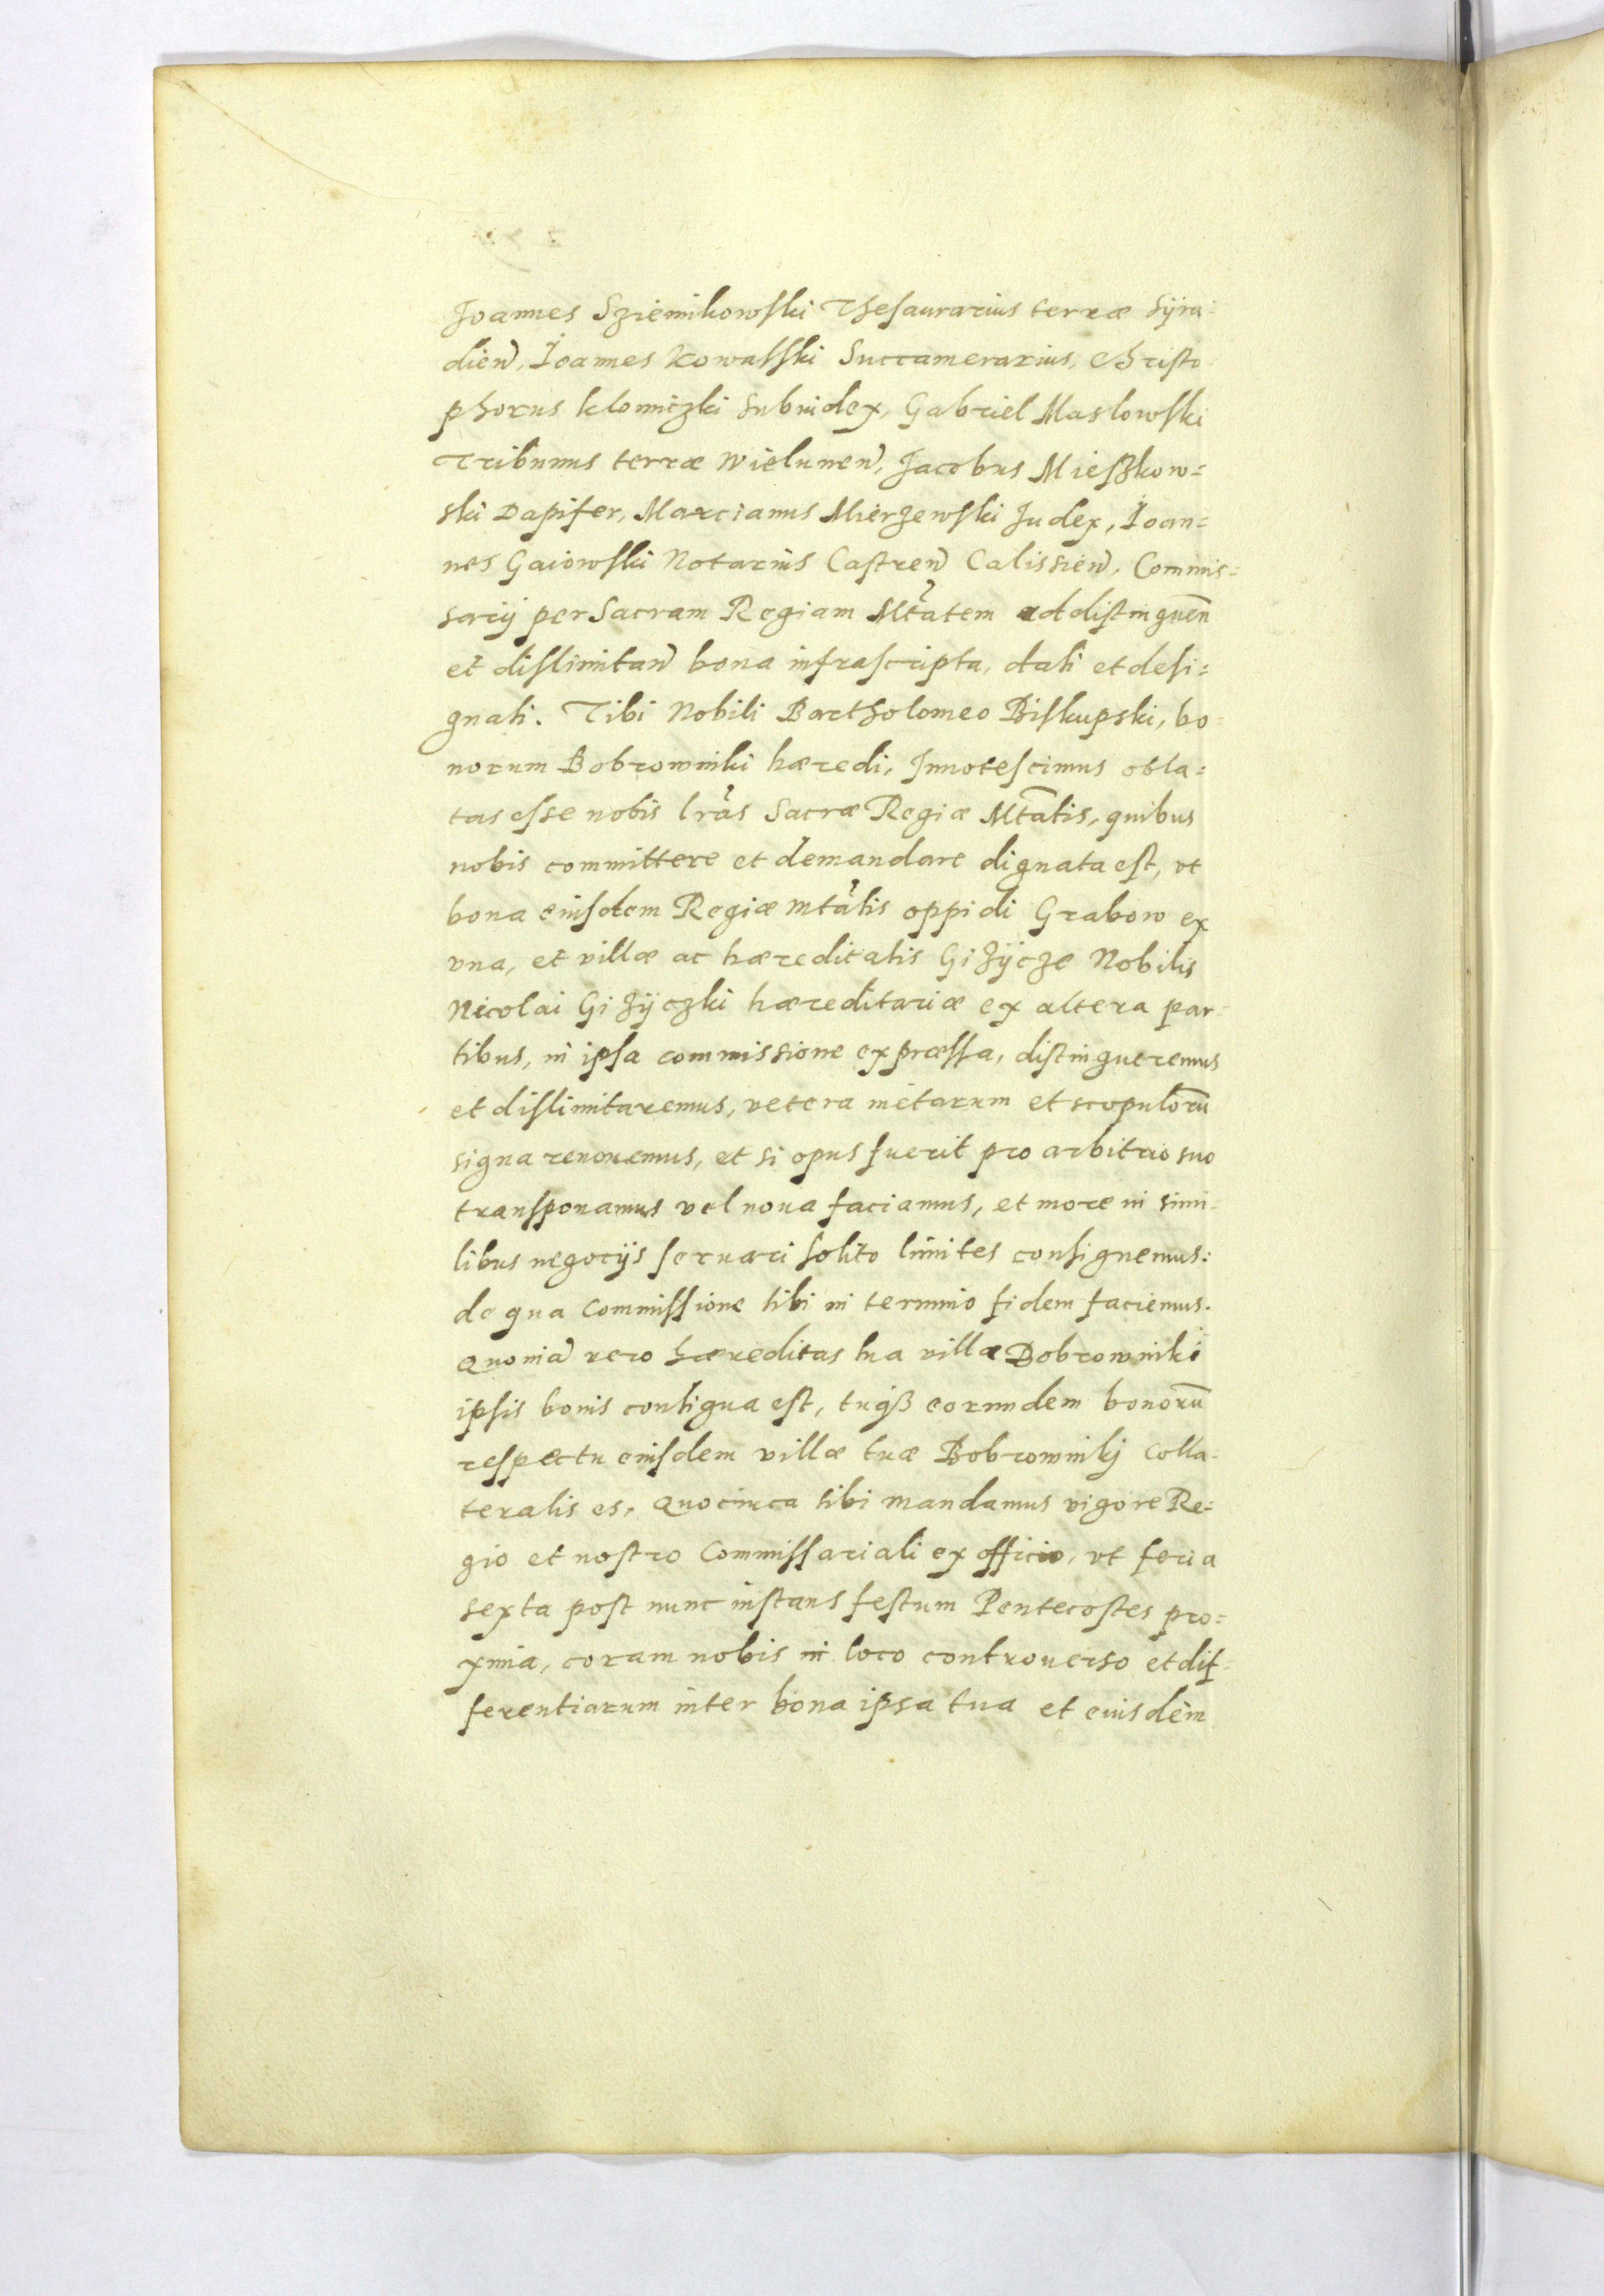 Joannes Sziemikowski Thesaurarius terræ Syra-
dien̄, Ioannes Kowalski Succamerarius, Christo-
phorus Klomiczki Subiudex, Gabriel Maslowski
Tribunus terræ Wielunen̄, Jacobus Mieszkow=
ski Dapifer, Marcianus Mierzewski Judex, Ioan=
nes Gaiowski Notarius Castren̄ Calissien̄, Commis=
sarij per Sacram Regiam Mtātem ad distinguen̄
et dislimitan̄ bona infrascripta, dati et desi=
gnati. Tibi Nobili Bartholomeo Biskupski, bo=
norum Bobrowniki hæredi, Innotescimus obla=
tas esse nobis lrās Sacræ Regiæ Mtātis, quibus
nobis committere et demandare dignata est, vt
bona eiusdem Regiæ Mtātis oppidi Grabow ex
vna, et villæ ac hæreditatis Giżÿcze Nobilis
Nicolai Giżÿczki hæreditariæ ex altera par-
tibus, in ipsa commissione expræssa, distingueremus
et dislimitaremus, vetera metarum et scopulorū
signa renouemus, et si opus fuerit pro arbitrio suo
transponamus vel noua faciamus, et more in simi-
libus negocijs seruari solito limites consignemus:
de qua Commissione tibi in termino fidem faciemus.
Quoniā vero hæreditas tua villæ Bobrowniki
ipsis bonis contigua est, tuqꝫ eorundem bonorū
respectu eiusdem villæ tuæ Bobrownikj Colla-
teralis es. Quocirca tibi mandamus vigore Re=
gio et nostro Commissariali ex officio, vt feria
sexta post nunc instans festum Pentecostes pro=
xima, coram nobis in loco controuerso et dif-
ferentiarum inter bona ipsa tua et eiusdem